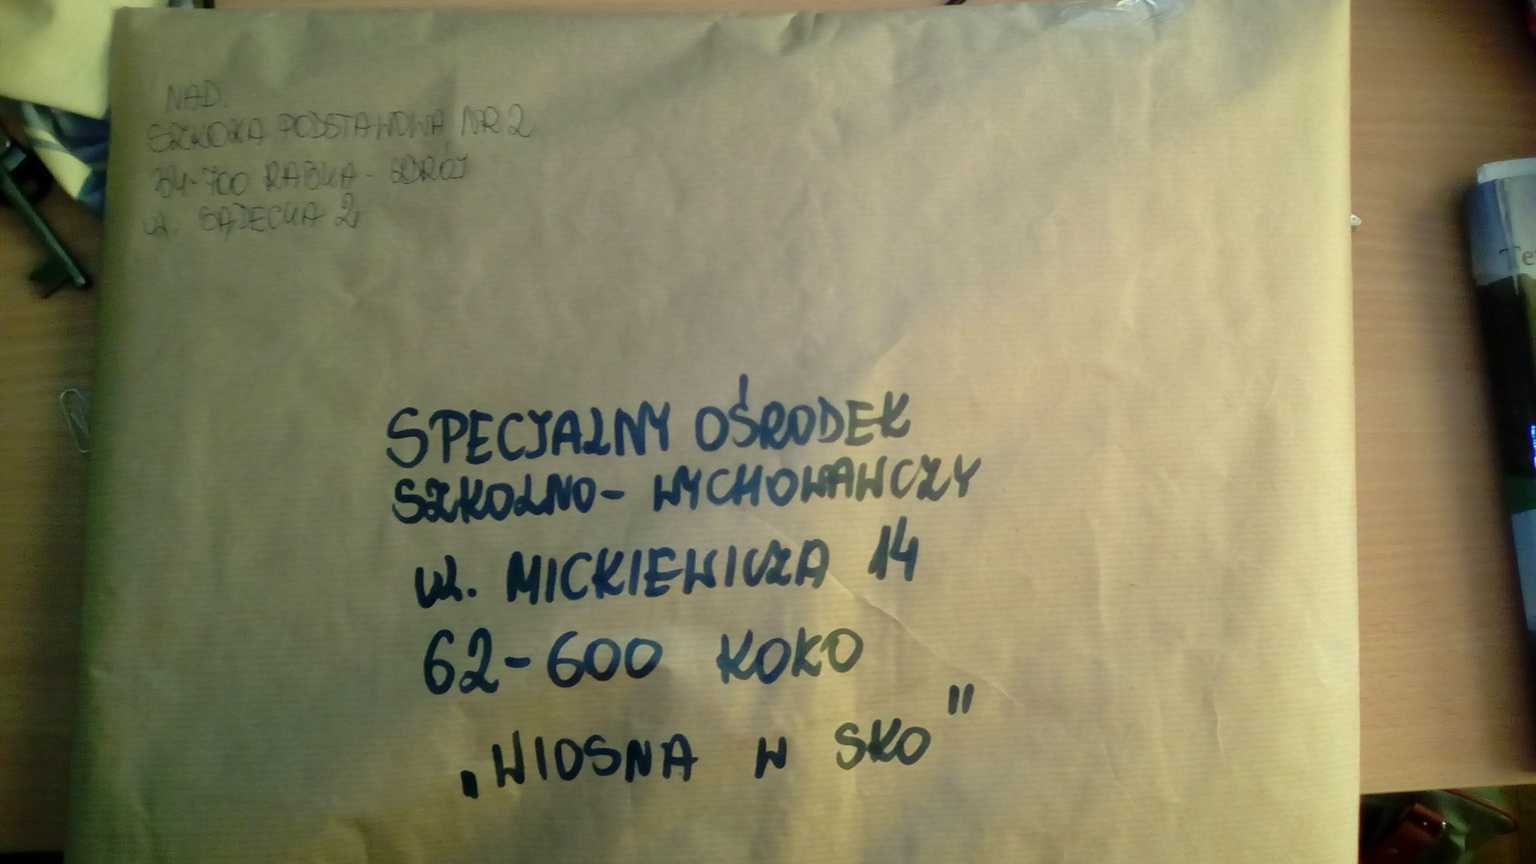 NAD.
SZKOŁA PODSTAWOWA NR 2
34-700 RABKA - ZDRÓJ
ul. SĄDECKA 2
SPECJALNY OŚRODEK
SZKOLNO - WYCHOWAWCZY
ul. MICKIEWICZA 14
62-600 KOŁO
„WIOSNA W SKO"